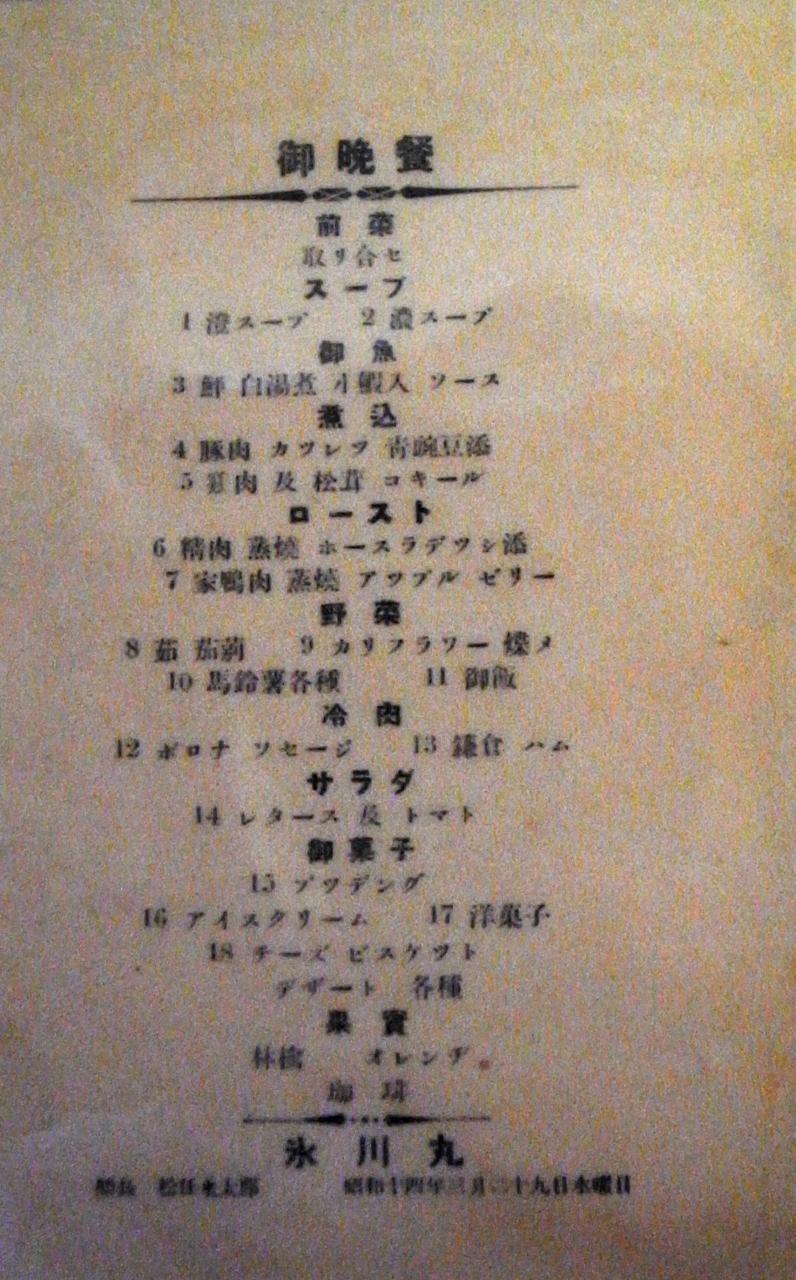 御晩餐
前菜
取リ合セ
スープ
1 澄スープ 2 濃スープ
御魚
3 鮃 白湯煮 小蝦入 ソース
煮込
4 豚肉 カツレツ 青豌豆添
5 肉 及 松茸 コキール
ロースト
6 犢肉 蒸燒 ホースラデツシ添
7 家鴨肉 蒸燒 アツプル ゼリー
野菜
8 茹 9 カリフラワー 煠メ
10 馬鈴薯各種 11 御飯
冷肉
12 ボロナ ソセージ 13 鎌倉 ハム
サラダ
14 レタース 及 トマト
御菓子
15 プツデング
16 アイスクリーム 17 洋菓子
18 チーズ ビスケツト
デザート 各種
果實
林檎 オレンヂ
珈琲
氷川丸
船長 昭和十四年三月二十九日水曜日